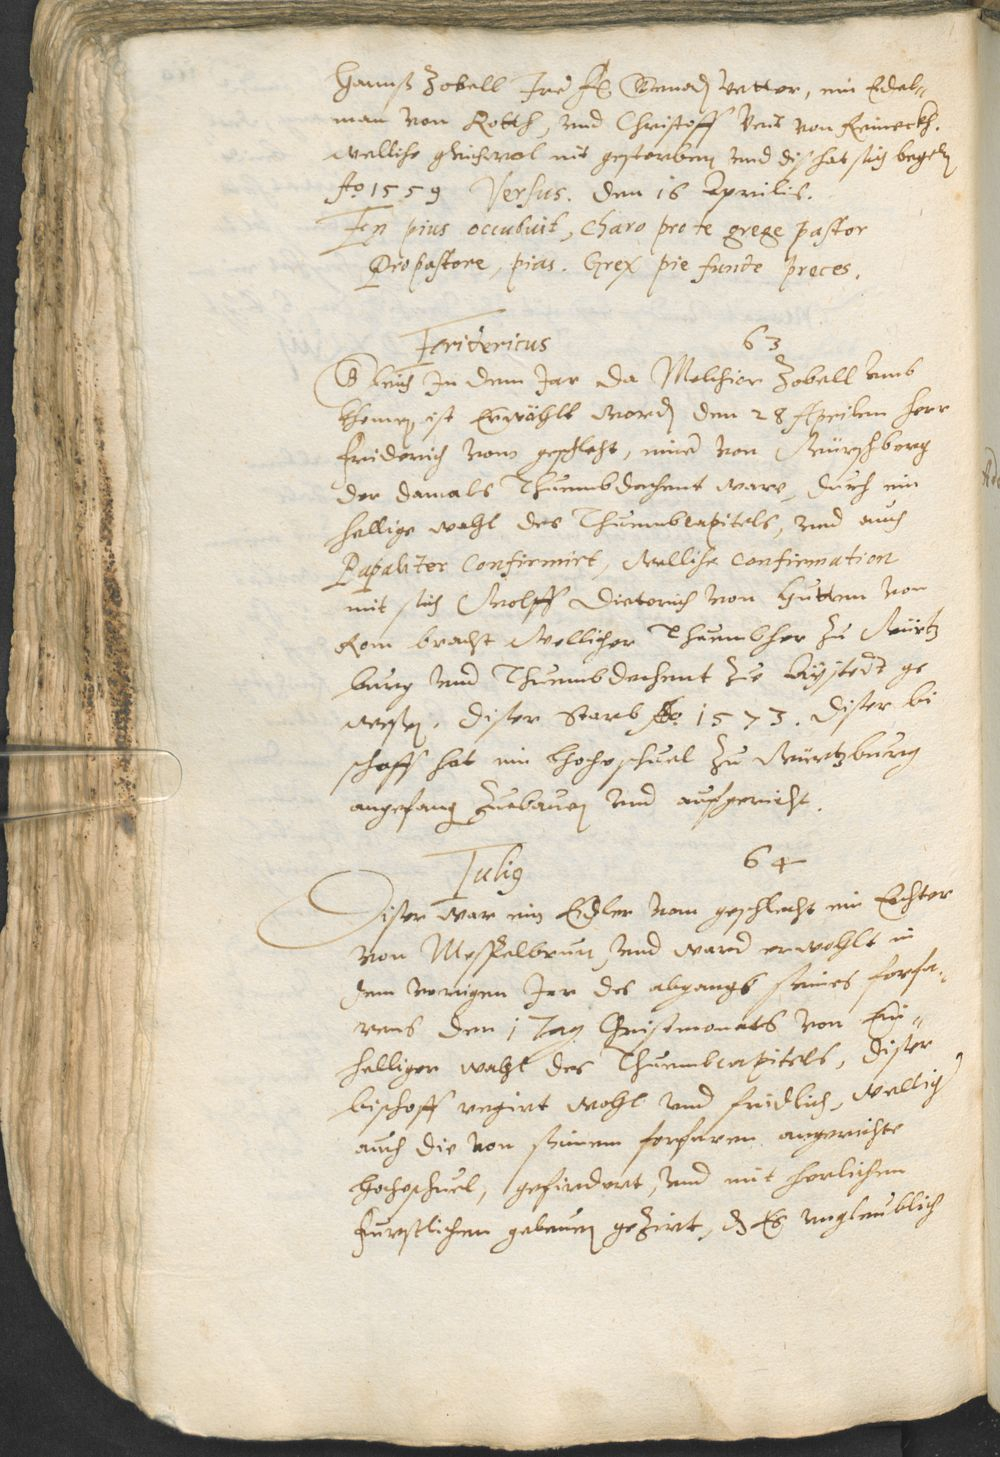 Hannß Zobell Irer fG Gnad Vetter, ein Edel-
man von Rotth, und Christoff Veit von Rineckh.
welliche gleichwol nit gestorben und dis hat sich begeben
Ao 1559 Versus. den 16 Aprilis.
En pius occubuit, charo pro te grege pastor
Pro pastore, pias. Grex pie funde preces.
Feridericus 63
Gleich In dem Jar da Melchior Zobell umb
khomen ist Erwöhlt worden den 28 Aprilen herr
Friderich vom geschlecht, einer von Würschberg
der damals Thuembdechent ware, durch ein
hellige wahl des Thuembcapitels, und auch
Papaliter Confirmirt, welliche Confirmation
mit sich Wolff Dieterich von Hutten von
Rom bracht wellicher Thuembher zu Würtz
burg und Thuembdechent zue Aystedt ge
wessen. diser Starb Ao. 1573. diser bi
schoff hat ein hochschuel zu Würtzburg
angefang zuebauen und aufgericht.
Julig 64
Diser war ein Edler vom geschlecht ein Echter
von Messpelbrun, und ward erwohlt in
dem vorigen Jar des abgangs seines forfa-
rens den 1 Tag Cristmonats von Ein-
helliger wahl des Thuembcapitels, diser
bischoff regirt wohl und fridlich, wellich
auch die von seinem forfaren angerichte
hochschuel, gefirdert, und mit herlichen
furstlichen gebeuen geZirt, das Es unglaublich